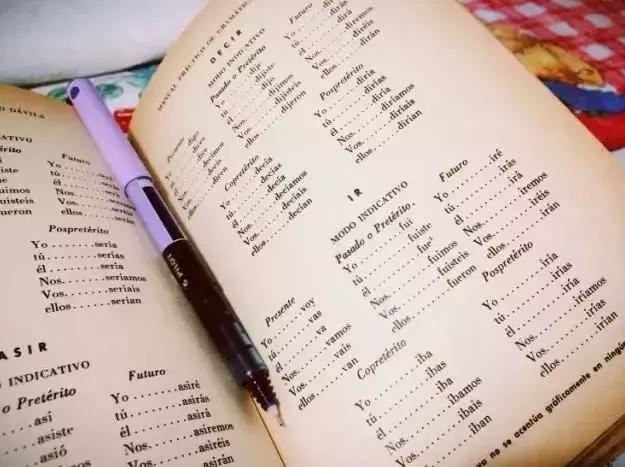 O DÁVILA
ICATIVO
érito
uimos
uisteis
ueron
Futuro
Yo
tú
él
Nos.
Vos.
ellos
Pospretérito
Yo........seria
tú........serias
él........seria
Nos.......seriamos
Vos.......seriais
ellos......serian
ASIR
INDICATIVO
o Pretérito
así
asiste
asió
Futuro
Yo........asiré
tú........asirás
él........asirá
Nos.......asiremos
asiréis
asirán
MANUAL PRÁCTICO DE GRAMÁTI
DECIR
MODO INDICATIVO
Presente
Yo......digo
tú......dices
él......dice
decis
ellos......dicen
Pasado o Pretérito
Yo........dije
tú........dijiste
él........dijo
Nos.......dijimos
Vos.......dijisteis
ellos......dijeron
Futuro
dirás
él........dirá
Nos.......diremos
Vos.......diréis
ellos......dirán
Copretérito
Yo........decia
tú........decias
él........decia
Nos.......deciamos
Vos.......deciais
ellos......decian
Pospretérito
Yo........diria
tú........dirias
él........diria
Nos.......diriamos
Vos.......diriais
ellos......dirian
IR
MODO INDICATIVO
Presente
Yo........voy
tú........vas
él........va
Nos.......vamos
Vos.......vais
ellos......van
Pasado o Pretérito.
Yo........fui
tú........fuiste
él........fue
Nos.......fuimos
Vos.......fuisteis
ellos......fueron
Futuro
Yo........iré
tú........irás
él........irá
Nos.......iremos
Vos.......iréis
ellos......irán
Copretérito
Yo........iba
tú........ibas
él........iba
Nos.......ibamos
Vos.......ibais
ellos......iban
Pospretérito
Yo........iria
tú........irias
él........iria
Nos.......iriamos
Vos.......iriais
ellos......irian
va no se acentúa gráficamente en ningún
PILOT